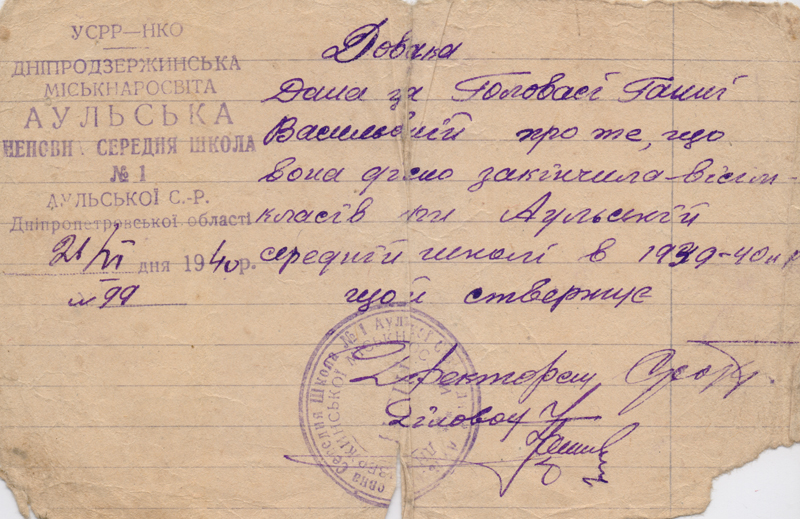 УСРР—НКО
ДНІПРОДЗЕРЖИНСЬКА
МІСЬКНАРОСВІТА
АУЛЬСЬКА
НЕПОВН. СЕРЕДНЯ ШКОЛА
№ 1
АУЛЬСЬКОЇ С.-Р.
Дніпропетровської області
21/VI дня 1940 р.
№ 99
Довідка
Дана за Головасі Ганні
Васильєвній про те, що
вона дійсно закінчила вісім
класів при Аульській
середній школі в 1939-40
що й стверджує
Директор
Діловод
Школа № 1 Аульс